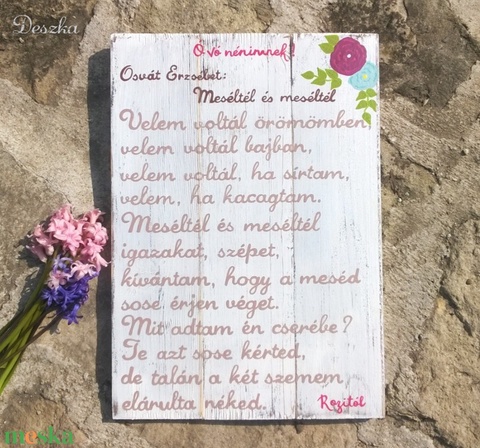 Deszka
Óvó nénimnek!
Osvát Erzsébet:
Meséltél és meséltél
Velem voltál örömömben,
velem voltál bajban,
velem voltál, ha sírtam,
velem, ha kacagtam.
Meséltél és meséltél
igazakat, szépet,
kívántam, hogy a meséd
sose érjen véget.
Mit adtam én cserébe?
Te azt sose kérted,
de talán a két szemem
elárulta néked.
Rozitól
meska